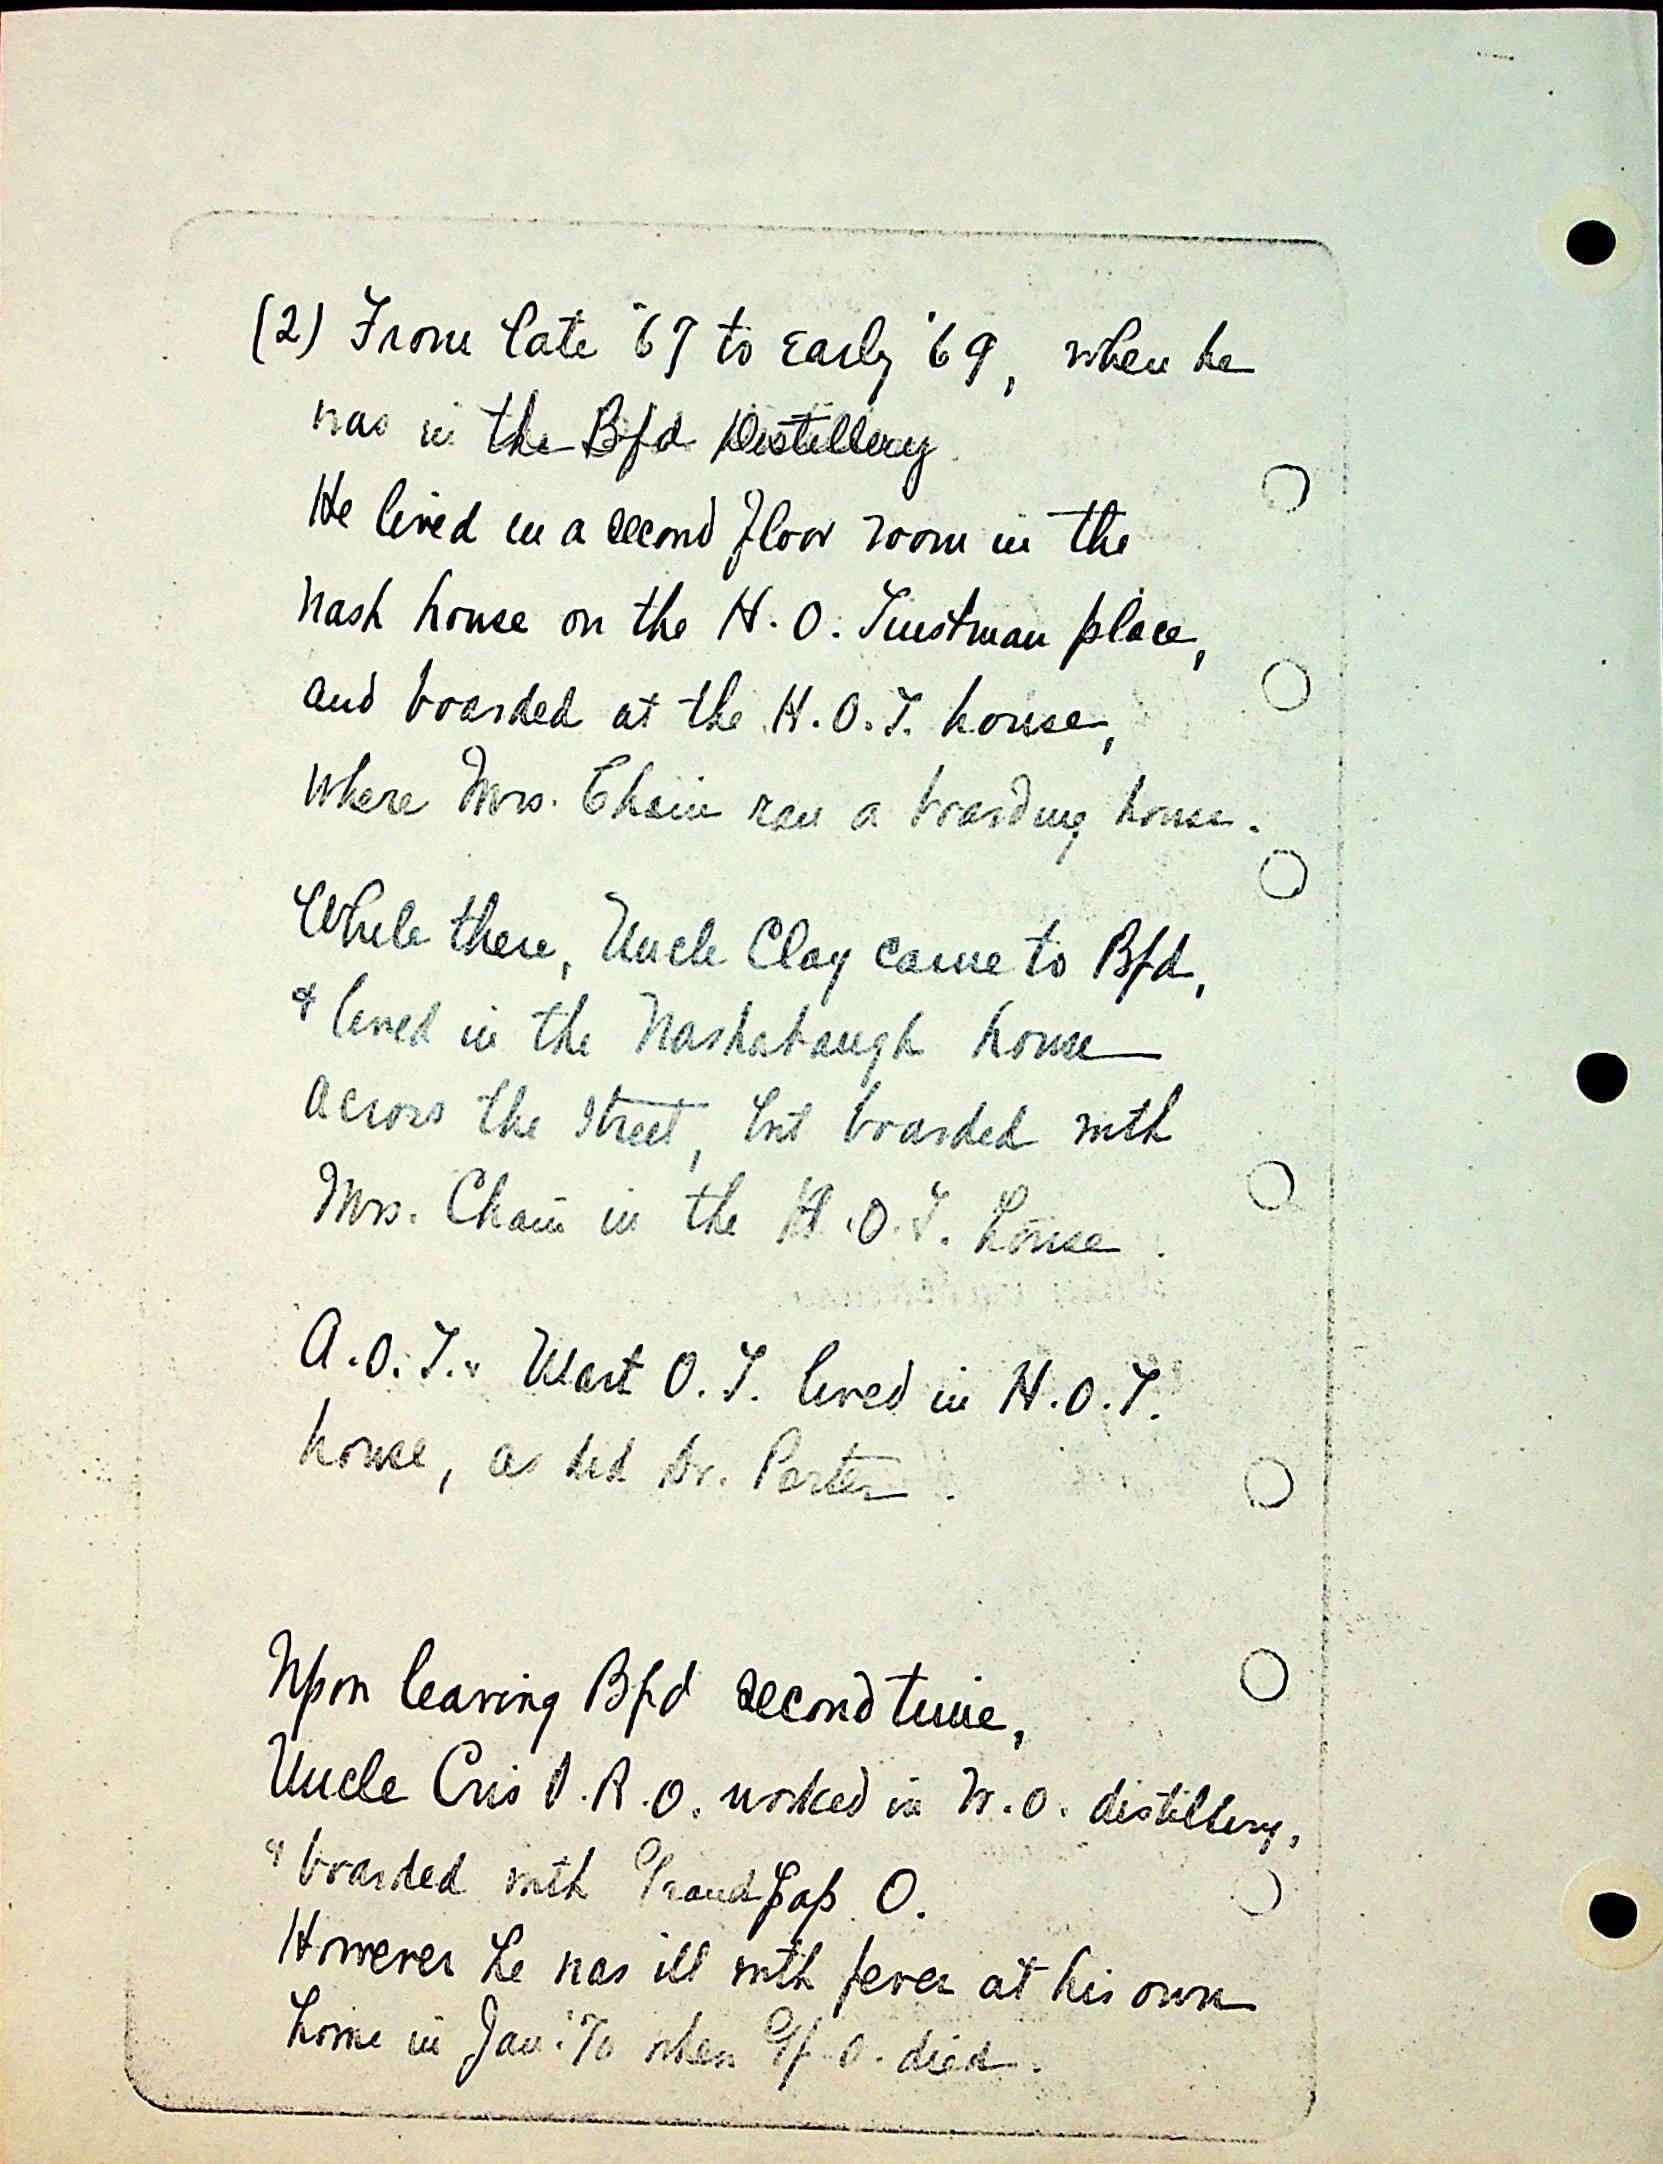 (2) From late '67 to early '69, when he
was in the Bfd Distillery.
He lived in a second floor room in the
Nash house on the H.O. Tinstman place,
and boarded at the H.O.T. house,
where Mrs. Chain ran a boarding house.
While there, Uncle Clay came to Bfd,
& lived in the Nashabaugh house
across the street, but boarded with
Mrs. Chain in the H.O.T. house.
A.O.T. & Mart O.T. lived in H.O.T.
house, as did Dr. Porter.
Upon leaving Bfd second time,
Uncle Cris S.R.O. worked in W.O. distillery,
& boarded with Grandpap O.
However he was ill with fever at his own
home in Jan. '70 when Gf. O. died.